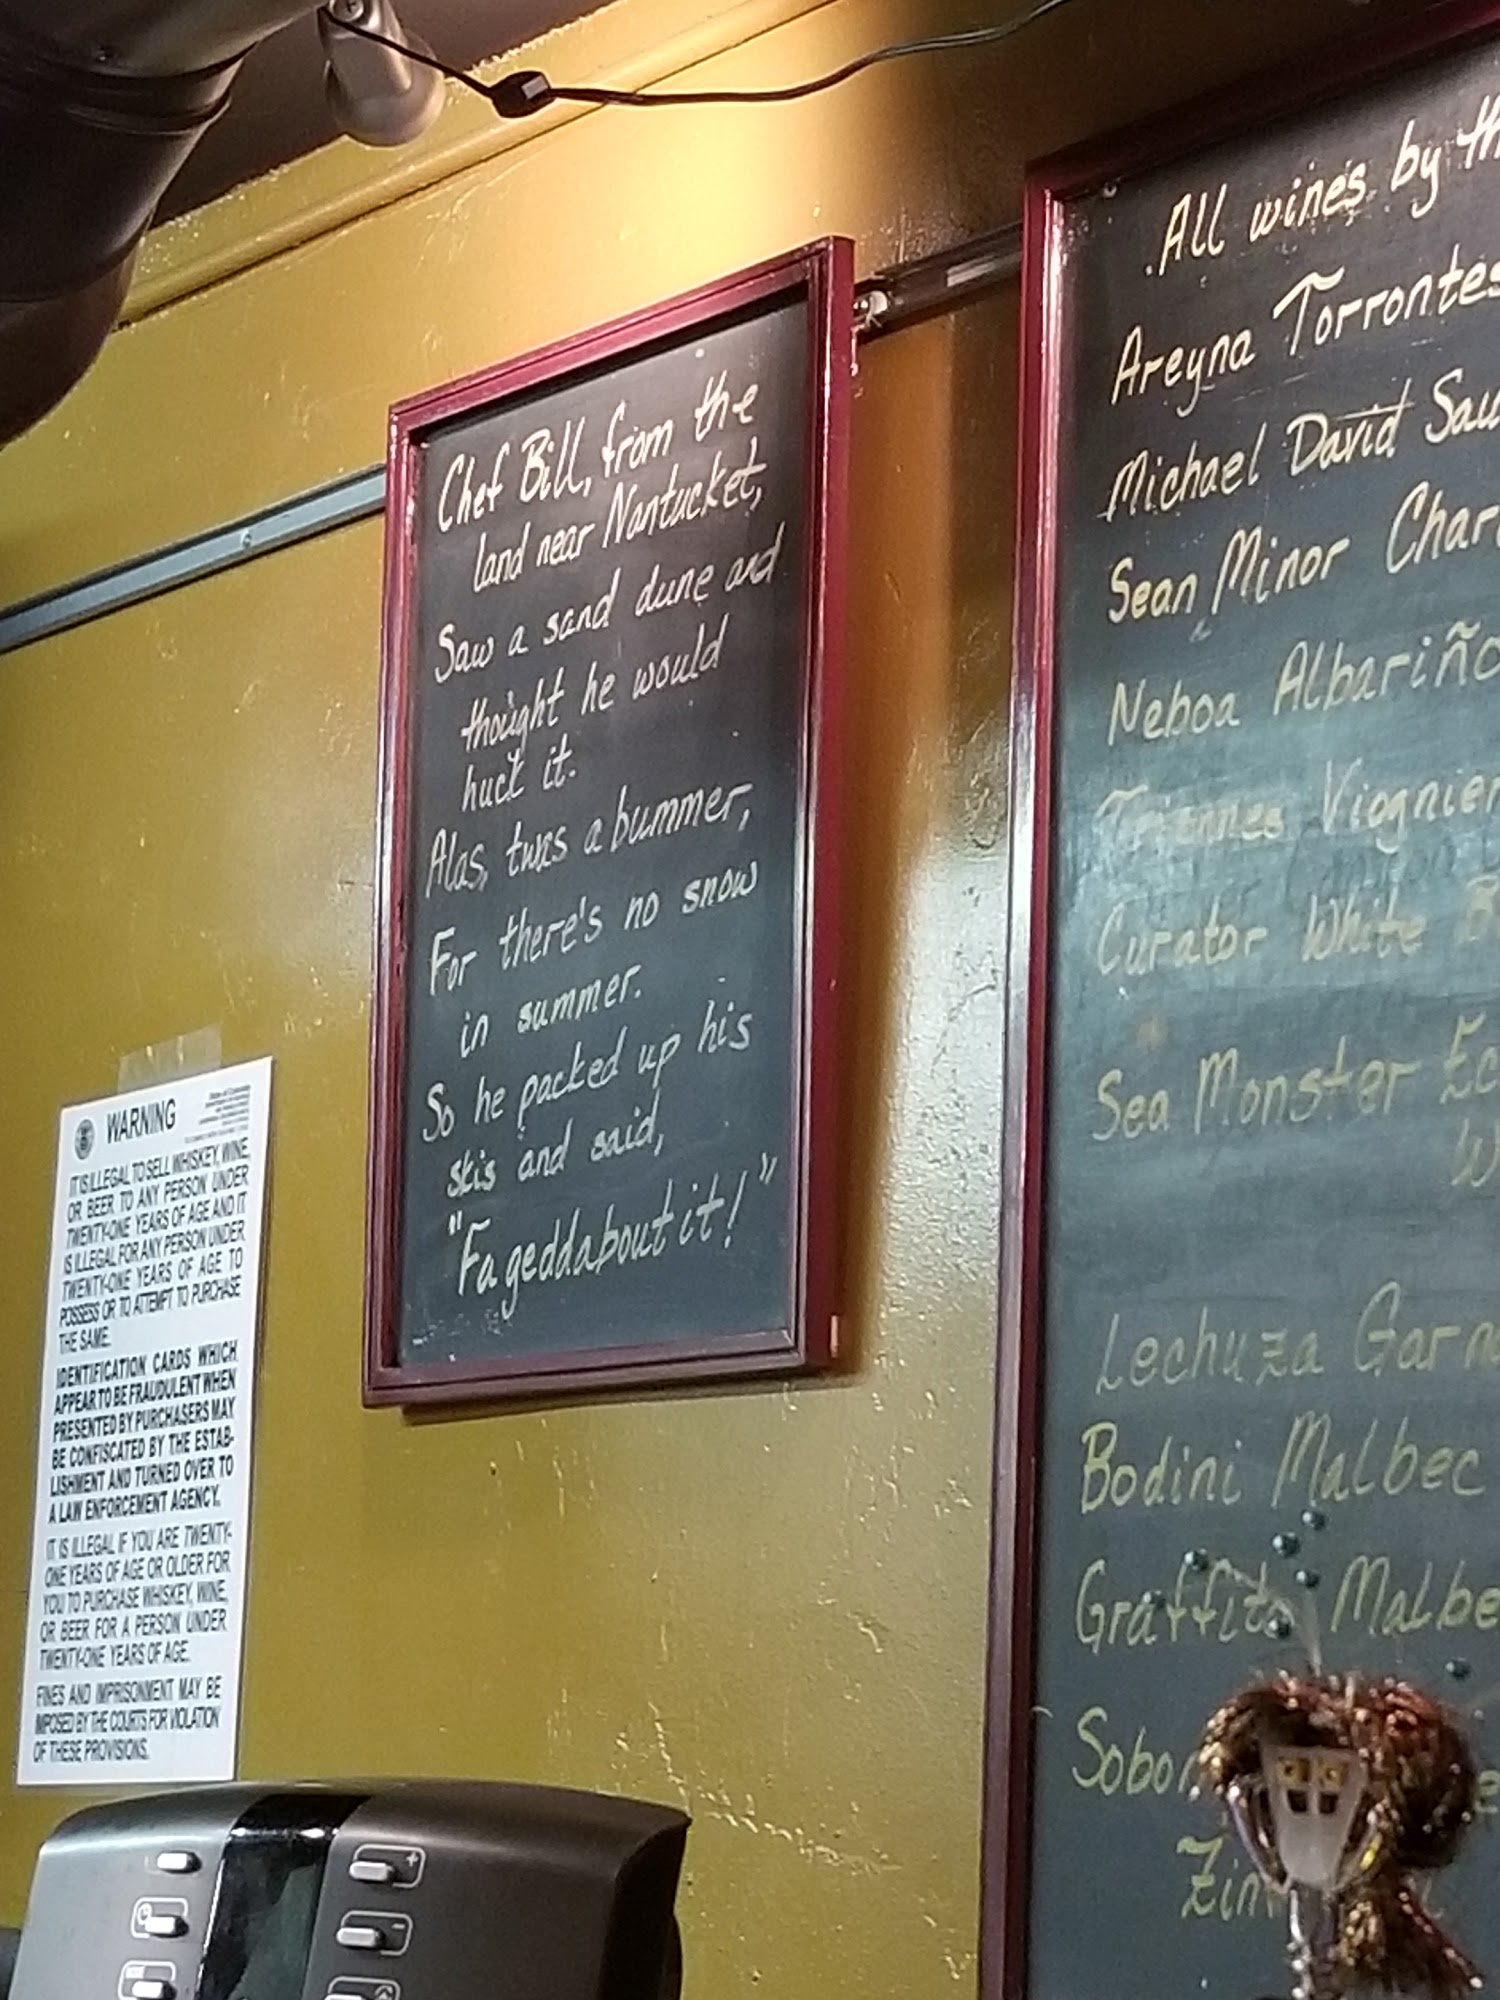 Chef Bill, from the
land near Nantucket,
Saw a sand dune and
thought he would
huck it.
Alas, twas a bummer,
For there's no snow
in summer.
So he packed up his
skis and said,
"Fageddaboutit!"
All wines by th
Areyna Torrontes
Michael David Sau
Sean Minor Char
Neboa Albariño
Triennes Viognier
Curator White B
Sea Monster Ec
W
Lechuza Garn
Bodini Malbec
Graffito Malbe
Sobon
Zin
WARNING
IT IS ILLEGAL TO SELL WHISKEY, WINE,
OR BEER TO ANY PERSON UNDER
TWENTY-ONE YEARS OF AGE AND IT
IS ILLEGAL FOR ANY PERSON UNDER
TWENTY-ONE YEARS OF AGE TO
POSSESS OR TO ATTEMPT TO PURCHASE
THE SAME.
IDENTIFICATION CARDS WHICH
APPEAR TO BE FRAUDULENT WHEN
PRESENTED BY PURCHASERS MAY
BE CONFISCATED BY THE ESTAB-
LISHMENT AND TURNED OVER TO
A LAW ENFORCEMENT AGENCY.
IT IS ILLEGAL IF YOU ARE TWENTY-
ONE YEARS OF AGE OR OLDER FOR
YOU TO PURCHASE WHISKEY, WINE,
OR BEER FOR A PERSON UNDER
TWENTY-ONE YEARS OF AGE.
FINES AND IMPRISONMENT MAY BE
IMPOSED BY THE COURTS FOR VIOLATION
OF THESE PROVISIONS.